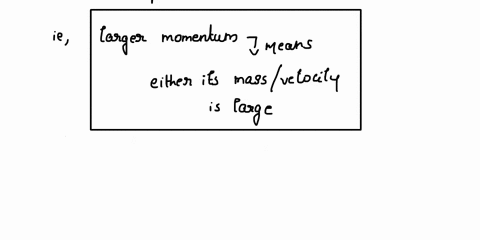 ie, larger momentum ↴ means
either its mass/velocity
is large